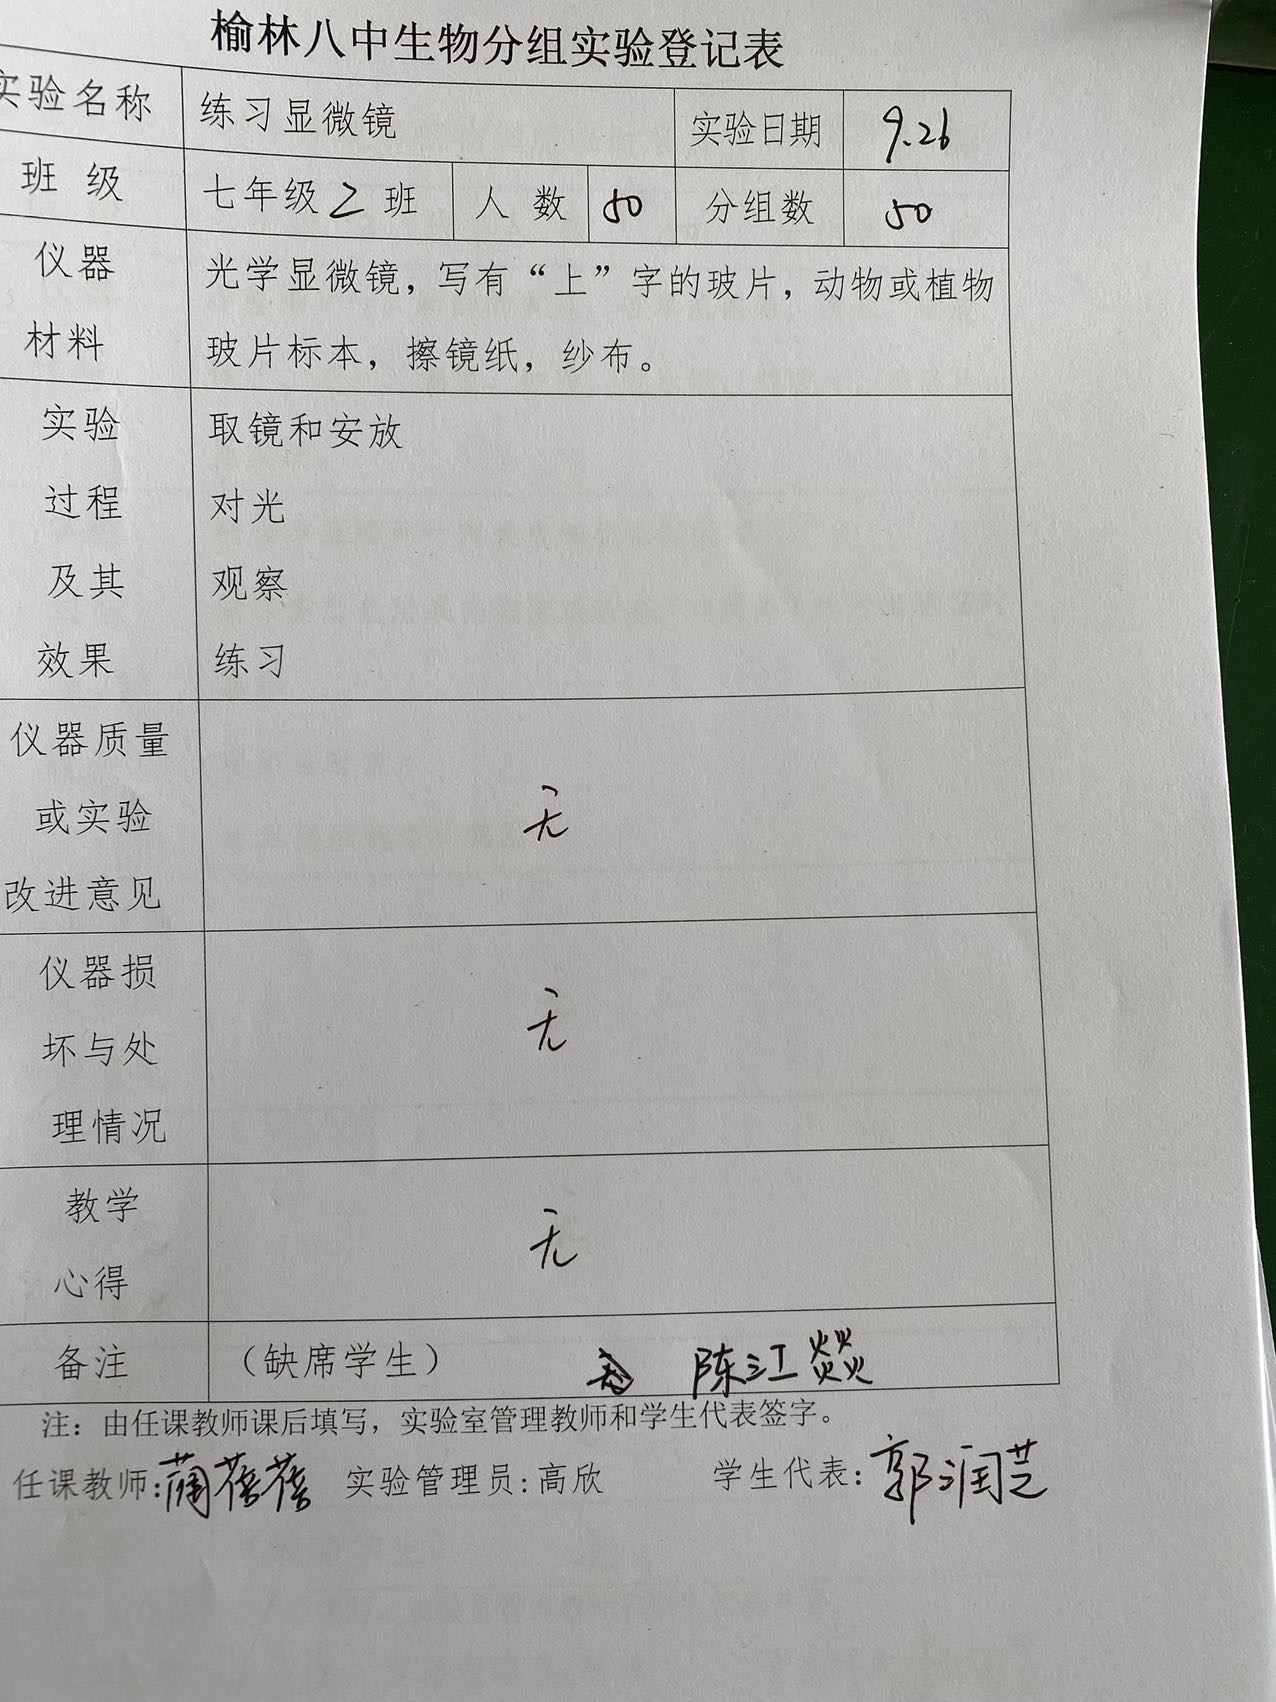 榆林八中生物分组实验登记表
实验名称 练习显微镜 实验日期 9.26
班 级 七年级 2 班 人 数 50 分组数 50
仪器 光学显微镜，写有“上”字的玻片，动物或植物
材料 玻片标本，擦镜纸，纱布。
实验 取镜和安放
过程 对光
及其 观察
效果 练习
仪器质量
或实验 无
改进意见
仪器损
坏与处 无
理情况
教学
心得 无
备注 （缺席学生） 陈江燚
注：由任课教师课后填写，实验室管理教师和学生代表签字。
任课教师: 蓓蓓 实验管理员: 高欣 学生代表: 郭润芝